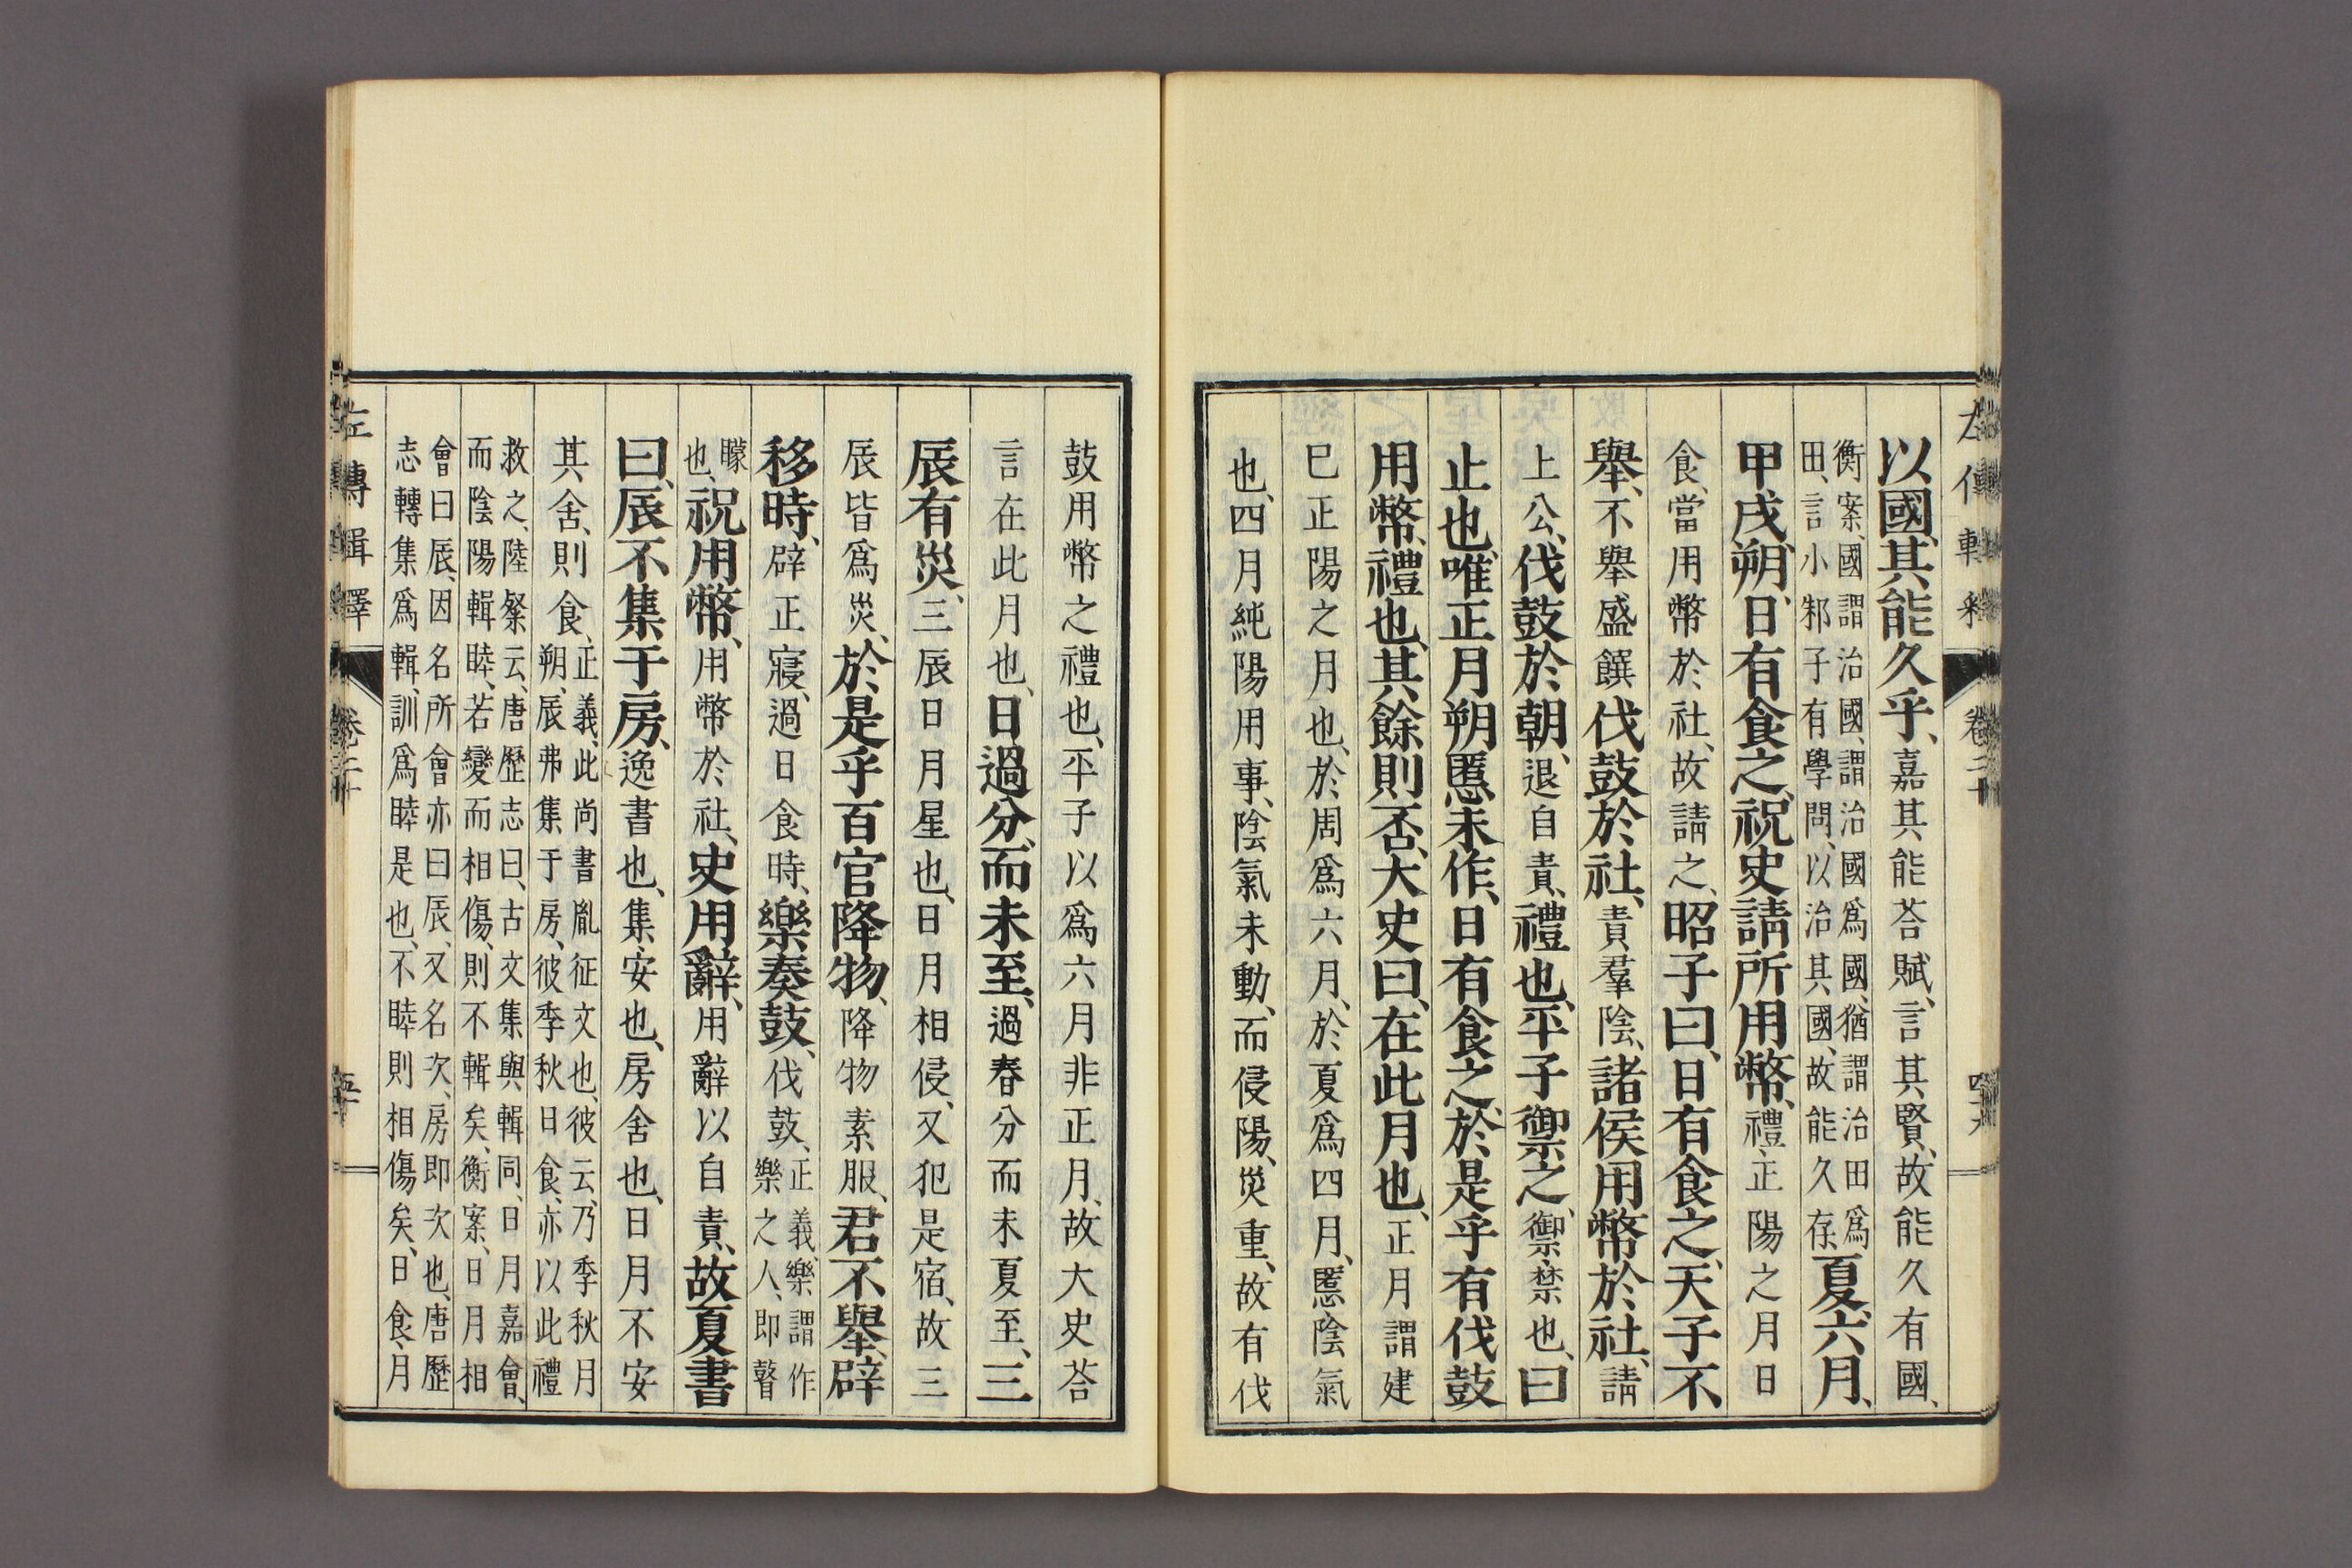 以國、其能久乎、嘉其能荅賦、言其賢、故能久有國、
衡案、國謂治國、謂治國爲國、猶謂治田爲
田、言小邾子有學問、以治其國、故能久存、夏六月、
甲戌朔、日有食之、祝史請所用幣、禮、正陽之月日
食、當用幣於社、故請之、昭子曰、日有食之、天子不
舉、不舉盛饌伐鼓於社、責羣陰、諸侯用幣於社、請
上公、伐鼓於朝、退自責、禮也、平子禦之、禦、禁也、曰
止也、唯正月朔、慝未作、日有食之、於是乎有伐鼓
用幣、禮也、其餘則否、大史曰、在此月也、正月謂建
巳正陽之月也、於周爲六月、於夏爲四月、慝陰氣
也、四月純陽用事、陰氣未動、而侵陽、災重、故有伐
鼓用幣之禮也、平子以爲六月非正月、故大史荅
言在此月也、日過分、而未至、過春分而未夏至、三
辰有災、三辰日月星也、日月相侵、又犯是宿、故三
辰皆爲災、於是乎百官降物、降物素服、君不舉、辟
移時、辟正寢、過日食時、樂奏鼓、伐鼓、正義、樂謂作
樂之人、即瞽
矇
也、祝用幣、用幣於社、史用辭、用辭以自責、故夏書
曰、辰不集于房、逸書也、集、安也、房舍也、日月不安
其舍、則食、正義、此尚書胤征文也、彼云、乃季秋月
朔、辰弗集于房、彼季秋日食、亦以此禮
救之、陸粲云、唐歷志曰、古文集與輯同、日月嘉會、
而陰陽輯睦、若變而相傷、則不輯矣、衡案、日月相
會曰辰、因名所會亦曰辰、又名次、房即次也、唐歷
志轉集爲輯、訓爲睦是也、不睦則相傷矣、日食、月
左傳輯釋
卷二十
五